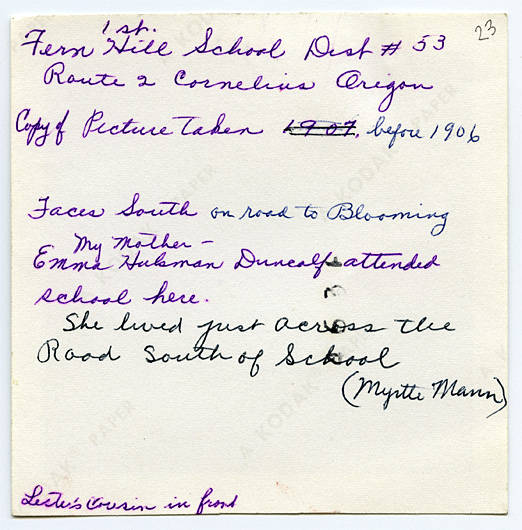 23
1st.
Fern Hill School Dist # 53
Route 2 Cornelius Origon
Copy of Picture Taken 1907, before 1906
Faces South on road to Blooming
My Mother -
Emma Hulsman Duncalf attended
school here.
She lived just across the
Road South of School
(Myrtle Mann)
Lester's Cousin in front
A KODAK PAPER